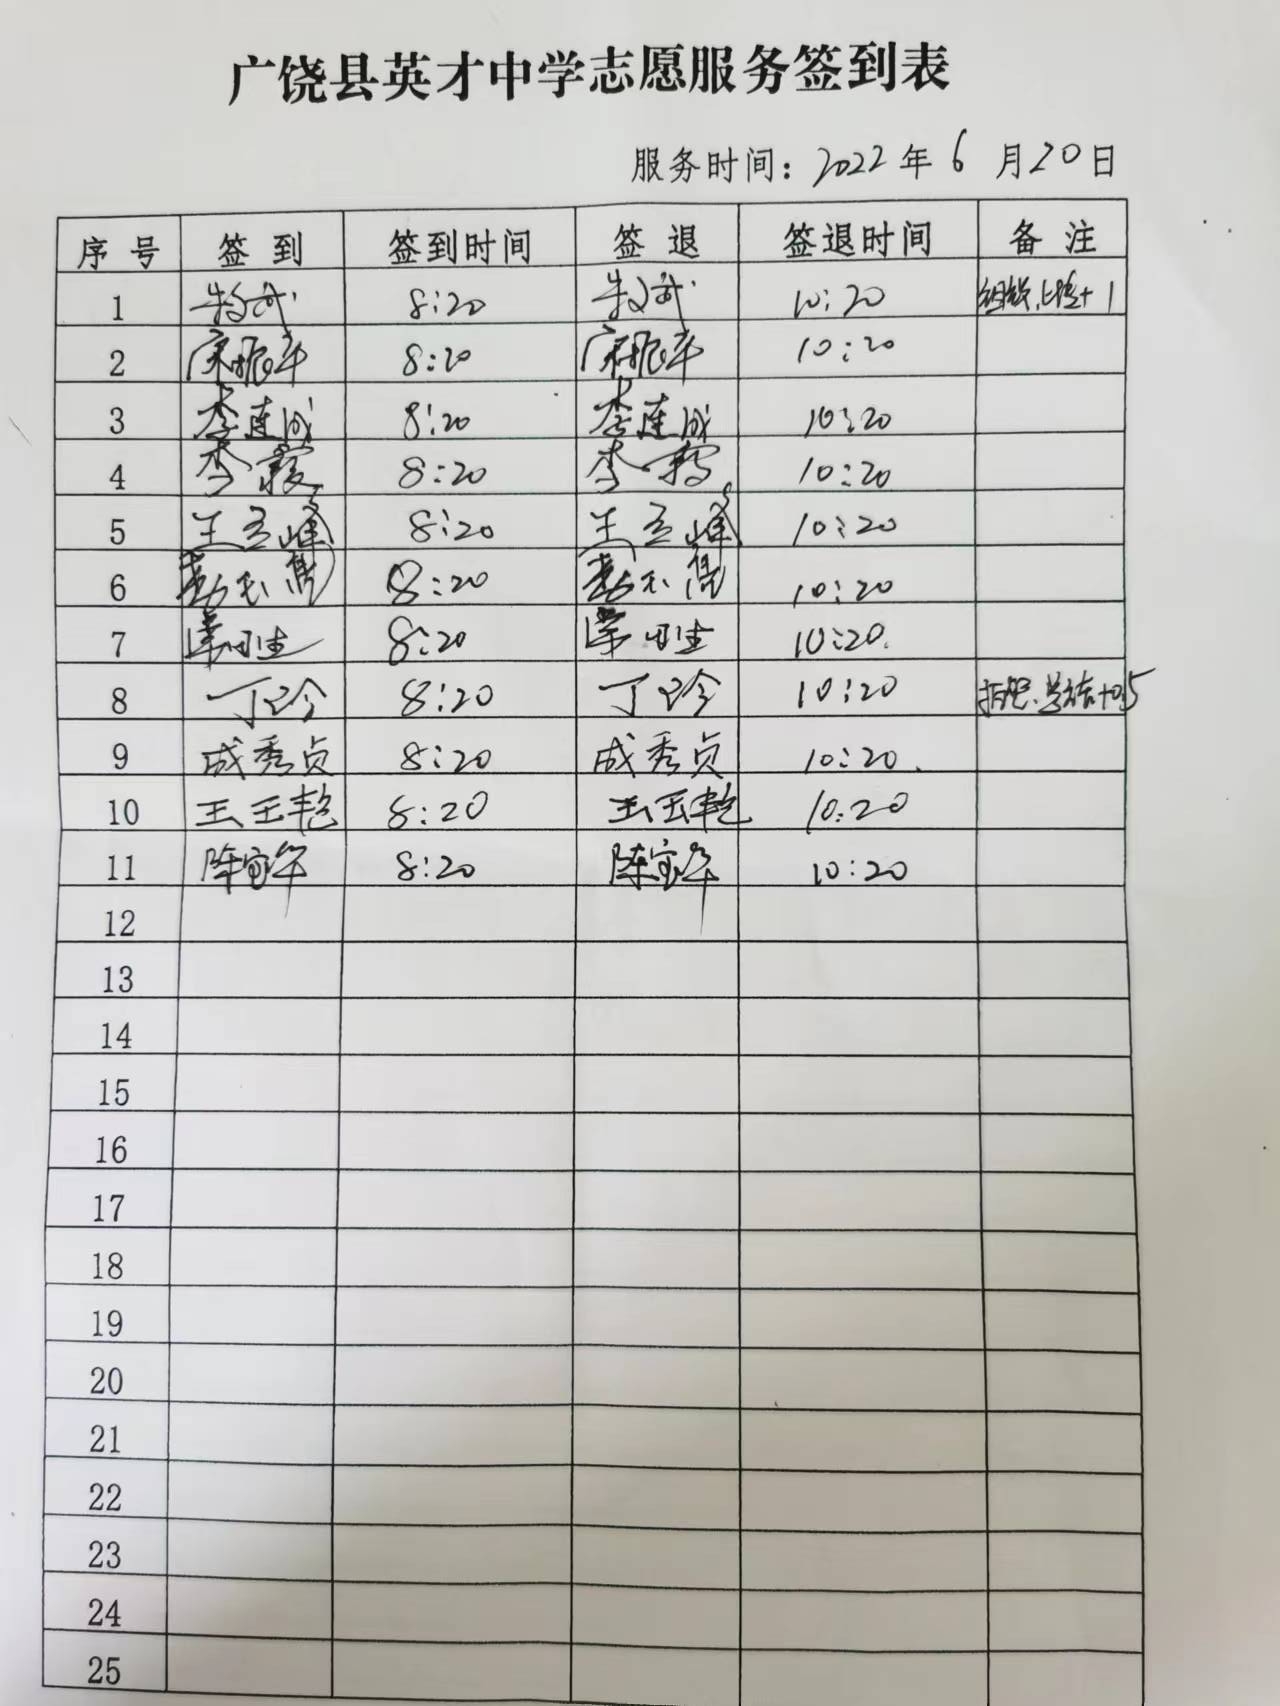 广饶县英才中学志愿服务签到表
服务时间：2022年6月20日
序号 签到 签到时间 签退 签退时间 备注
1 8:20 10:20 +1
2 宋振华 8:20 宋振华 10:20
3 李连成 8:20 李连成 10:20
4 李 8:20 李 10:20
5 王孟峰 8:20 王孟峰 10:20
6 8:20 10:20
7 8:20 10:20
8 丁玲 8:20 丁玲 10:20 总结+0.5
9 成秀贞 8:20 成秀贞 10:20
10 王玉艳 8:20 王玉艳 10:20
11 陈宝华 8:20 陈宝华 10:20
12
13
14
15
16
17
18
19
20
21
22
23
24
25